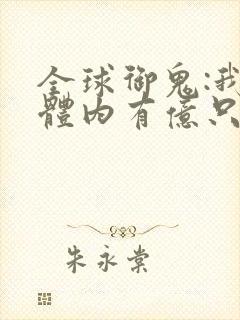 全球御鬼:我
體內有億只
朱永棠